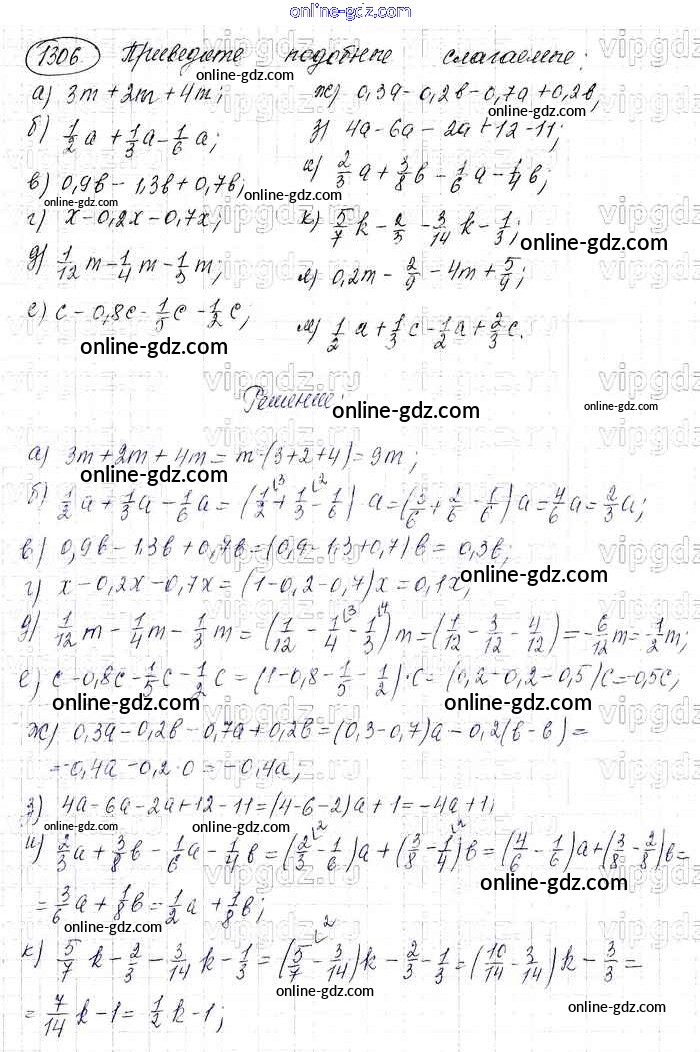 online-gdz.com
1306. Приведите подобные слагаемые:
а) 3m+2m+4m;
б) 1/2 a + 1/3 a - 1/6 a;
в) 0,9в - 1,3в + 0,7в;
г) x - 0,2x - 0,7x;
д) 1/12 m - 1/4 m - 1/3 m;
е) c - 0,8c - 1/5 c - 1/2 c;
ж) 0,3a - 0,2в - 0,7a + 0,2в;
з) 4a - 6a - 2a + 12 - 11;
и) 2/3 a + 3/8 в - 1/6 a - 1/4 в;
к) 5/7 k - 2/3 - 3/14 k - 1/3;
л) 0,2m - 2/9 - 4m + 5/9;
м) 1/2 a + 1/3 c - 1/2 a + 2/3 c.
Решение:
а) 3m+2m+4m = m·(3+2+4) = 9m;
б) 1/2 a + 1/3 a - 1/6 a = (1/2 + 1/3 - 1/6)·a = (3/6 + 2/6 - 1/6)a = 4/6 a = 2/3 a;
в) 0,9в - 1,3в + 0,7в = (0,9 - 1,3 + 0,7)в = 0,3в;
г) x - 0,2x - 0,7x = (1 - 0,2 - 0,7)x = 0,1x;
д) 1/12 m - 1/4 m - 1/3 m = (1/12 - 1/4 - 1/3)m = (1/12 - 3/12 - 4/12) = -6/12 m = -1/2 m;
е) c - 0,8c - 1/5 c - 1/2 c = (1 - 0,8 - 1/5 - 1/2)·c = (0,2 - 0,2 - 0,5)c = -0,5c;
ж) 0,3a - 0,2в - 0,7a + 0,2в = (0,3 - 0,7)a - 0,2(в - в) =
= -0,4a - 0,2·0 = -0,4a;
з) 4a - 6a - 2a + 12 - 11 = (4 - 6 - 2)a + 1 = -4a + 1;
и) 2/3 a + 3/8 в - 1/6 a - 1/4 в = (2/3 - 1/6)a + (3/8 - 1/4)в = (4/6 - 1/6)a + (3/8 - 2/8)в =
= 3/6 a + 1/8 в = 1/2 a + 1/8 в;
к) 5/7 k - 2/3 - 3/14 k - 1/3 = (5/7 - 3/14)k - 2/3 - 1/3 = (10/14 - 3/14)k - 3/3 =
= 7/14 k - 1 = 1/2 k - 1;